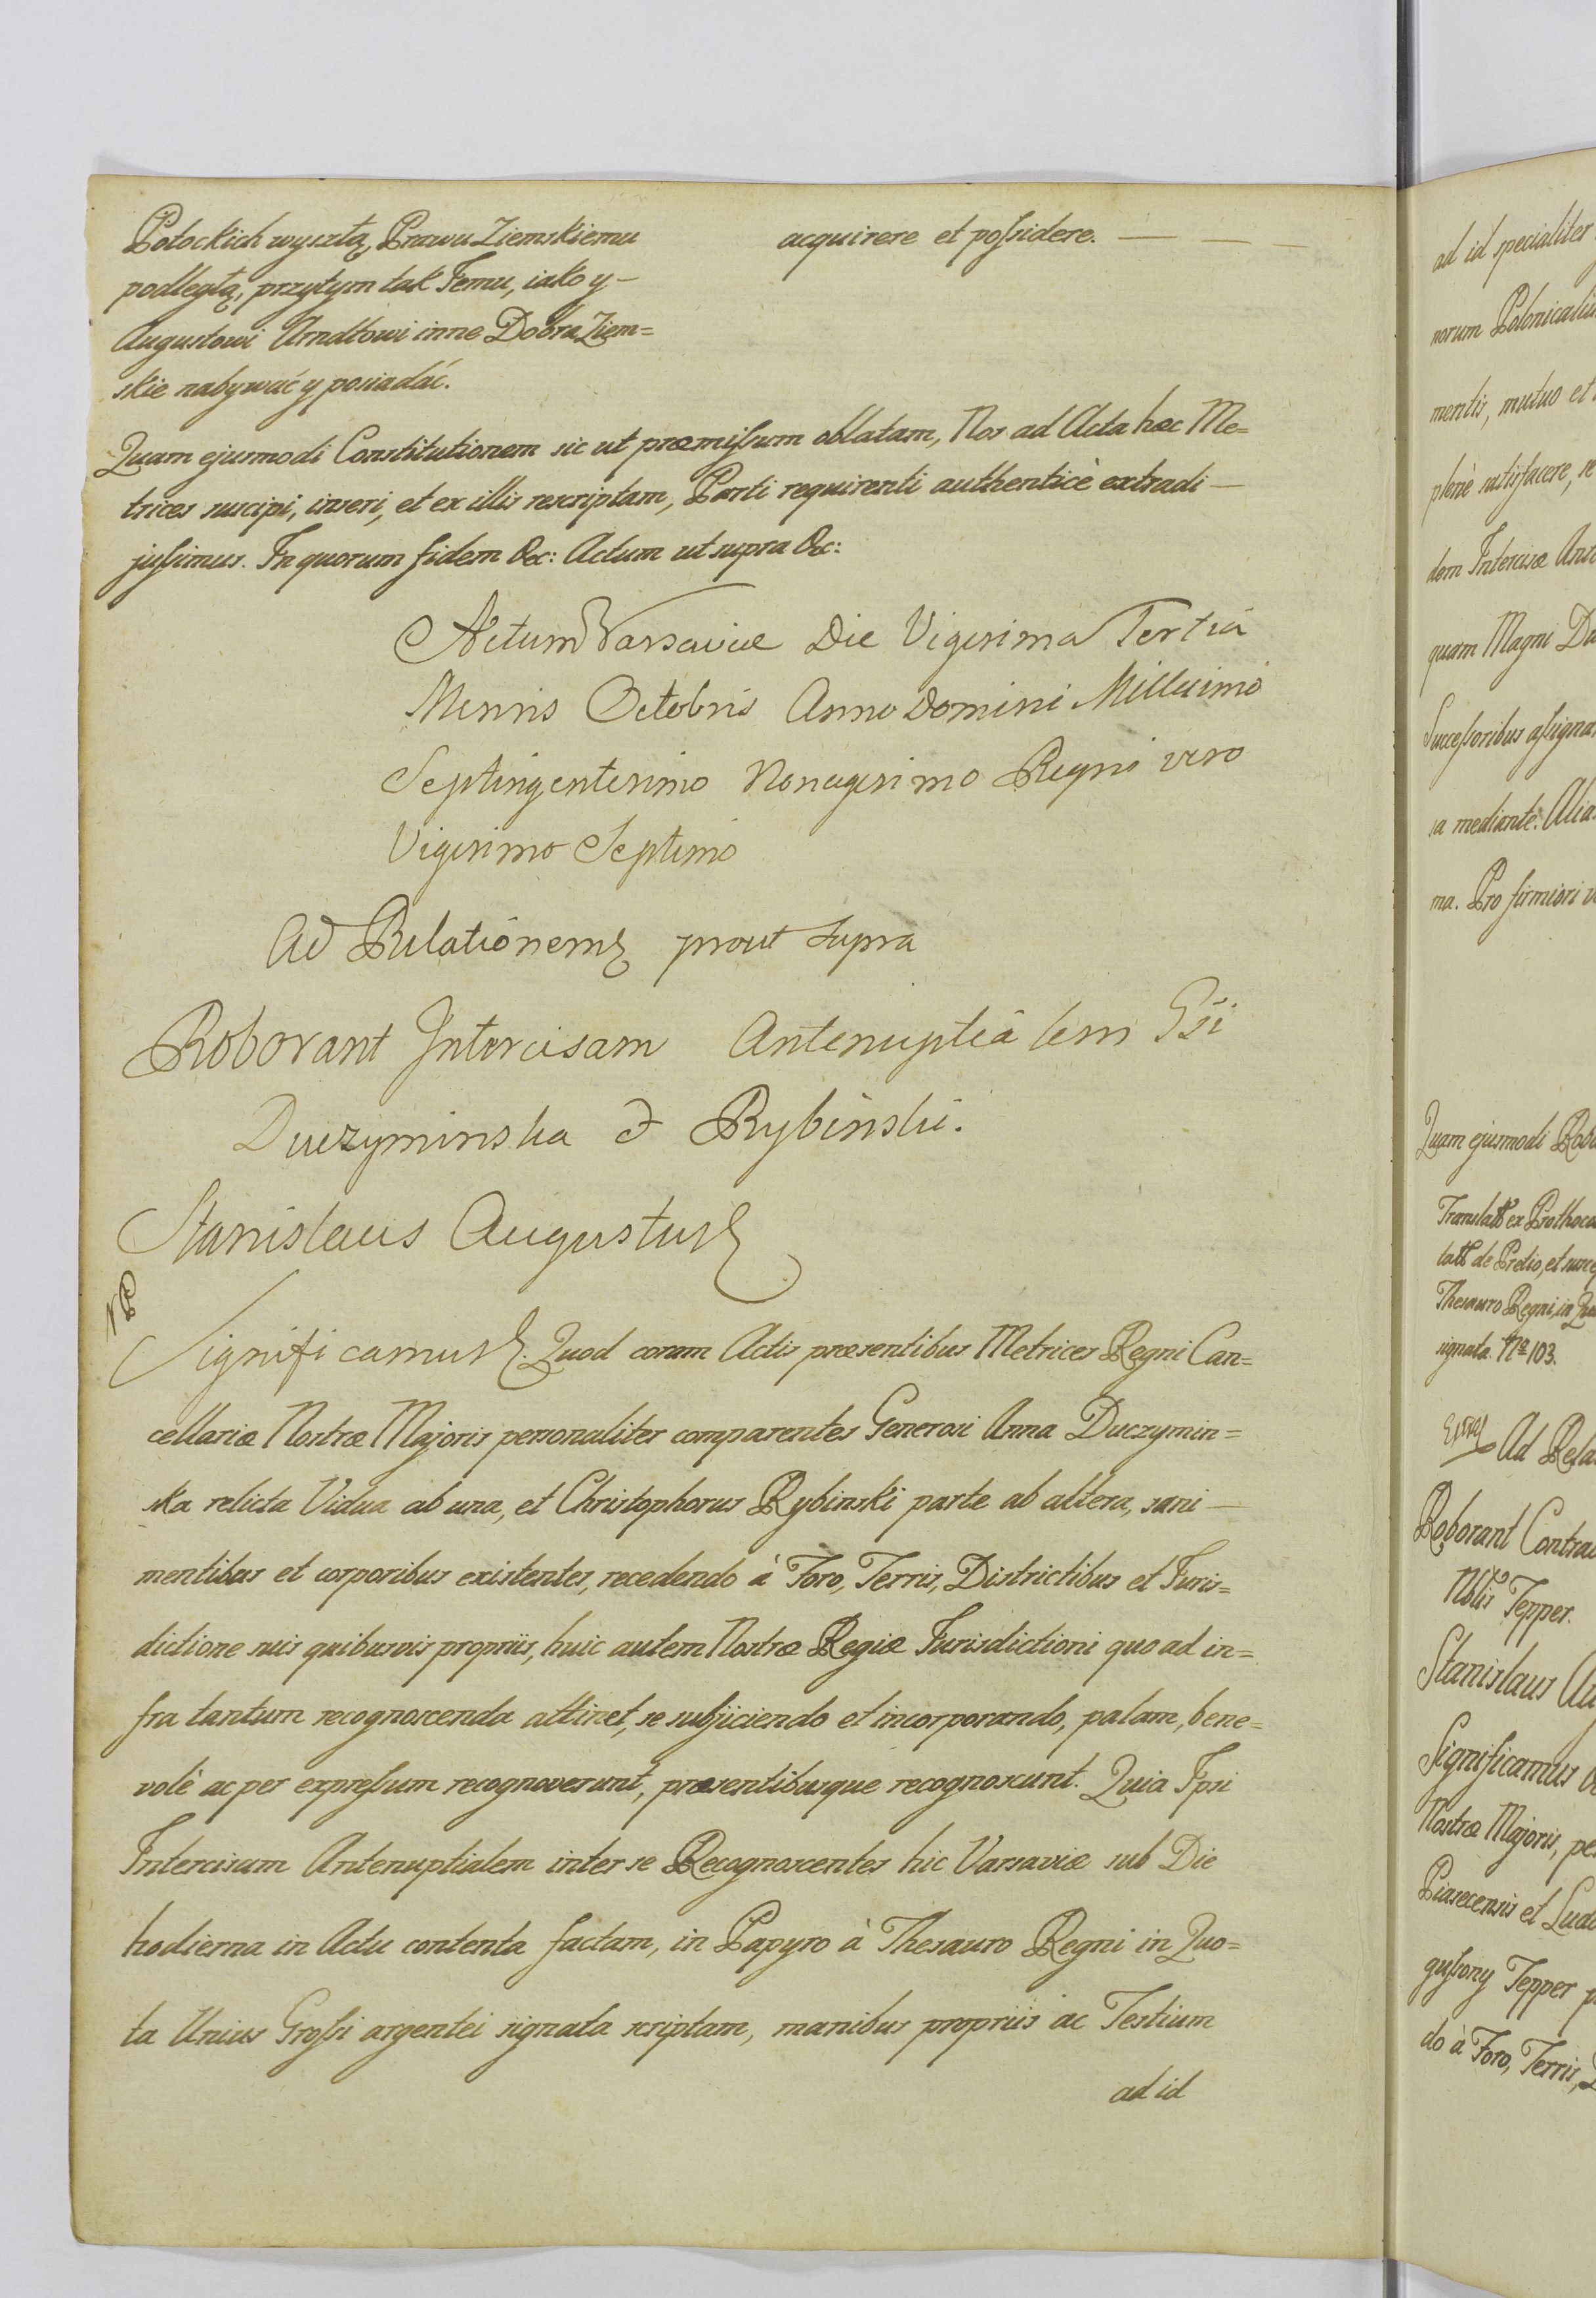 Potockich wyszłą, Prawu Ziemskiemu
podległą, przytym tak Jemu, iako y —
Augustowi Arndtowi inne Dobra Ziem=
skie nabywać y posiadać.
acquirere et possidere. — — —
Quam ejusmodi Constitutionem sic ut præmissum oblatam, Nos ad Acta hæc Me=
trices suscipi, inseri, et ex illis rescriptam, Parti requirenti authenticè extradi —
jussimus. In quorum fidem &c: Actum ut supra &c:
Actum Varsaviæ Die Vigesima Tertia
Mensis Octobris Anno Domini Millesimo
Septingentesimo Nonagesimo Regni vero
Vigesimo Septimo
Ad Relationem prout supra
Roborant Intercisam Antenuptiâlem Gsi
Duczyminska & Rybinski.
Stanislaus Augustus
Significamus. Quod coram Actis præsentibus Metrices Regni Can=
cellariæ Nostræ Majoris personaliter comparentes Generosi Anna Duczymin=
ska relicta Vidua ab una, et Christophorus Rybinski parte ab altera, sani —
mentibus et corporibus existentes, recedendo à Foro, Terris, Districtibus et Juris=
dictione suis quibusvis propriis, huic autem Nostræ Regiæ Jurisdictioni quo ad in=
fra tantum recognoscenda attinet, se subjiciendo et incorporando, palam, bene=
volè ac per expressum recognoverunt, præsentibusque recognoscunt. Quia Ipsi
Intercisam Antenuptialem inter se Recognoscentes hic Varsaviæ sub Die
hodierna in Actu contenta factam, in Papyro à Thesauro Regni in Quo=
ta Unius Grossi argentei signata scriptam, manibus propriis ac Testium
ad id
ad id specialiter
norum Polonicaliu
mentis, mutuo et
plenè satisfacere, se
dem Intercisæ Ant
quam Magni Da
Successoribus assigna
ia mediante. Alia
ma. Pro firmiori
Quam ejusmodi Robo
Translatt ex Prothoco
latt de Pretio, et susce
Thesauro Regni, in Quo
signata. No 103.
Ad Rela
Roborant Contrac
Nblis Tepper.
Stanislaus Au
Significamus
Nostræ Majoris, pe
Piasecensis et Ludo
gussony Tepper p
do à Foro, Terris,